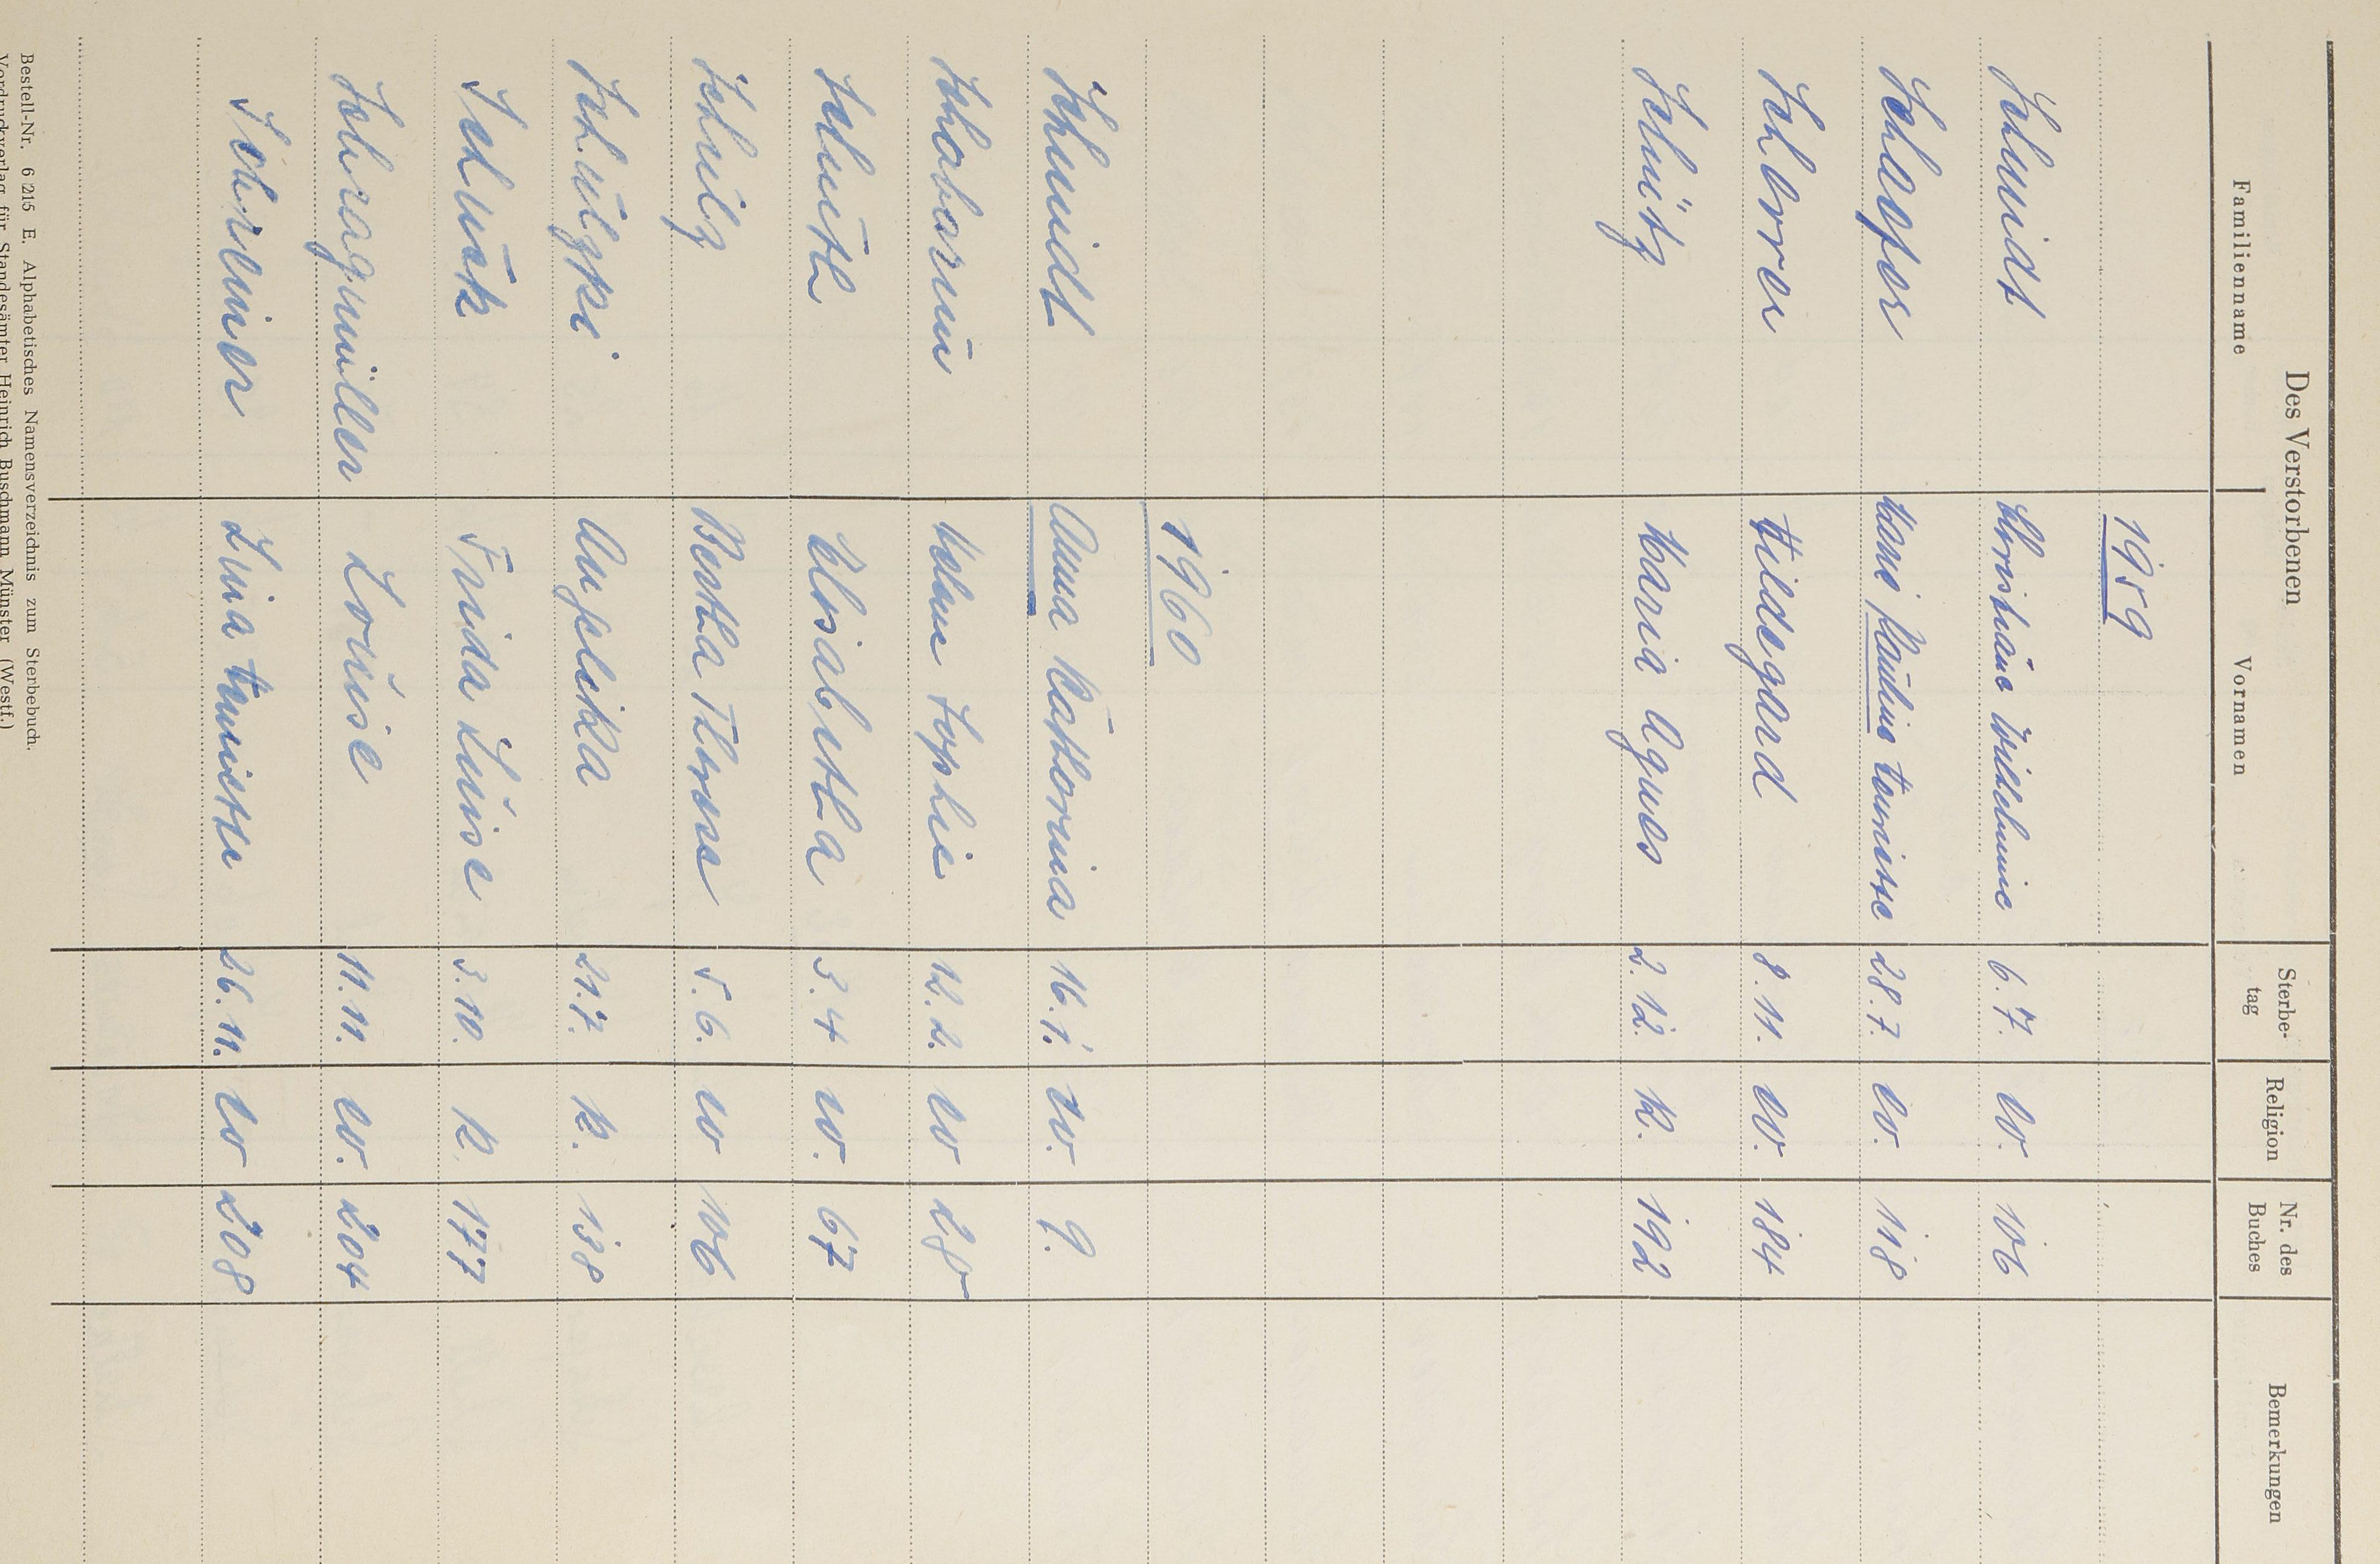 Des Verstorbenen
Familienname Vornamen Sterbe-tag Religion Nr. des Buches Bemerkungen
1959
Schmidt Christiane Wilhelmine 6.7. ev. 106
Schloesser Pauline 28.7. ev. 118
Scherrer Hildegard 8.11. ev. 184
Schütz Maria Agnes 2.12. k. 192
1960
Schmidt Anna Katharina 16.1. ev. 9.
Sophie 12.2. ev
Schüth Elisabetha 3.4 ev. 67
Schulz Bertha Therese 5.6. ev 106
Angelika 21.7. k. 138
Schuck Frieda Luise 3.10. k. 177
Schragmüller Louise 11.11. ev. 204
Schreiner Lina 26.11. ev 208
Bestell-Nr. 6 215 E. Alphabetisches Namensverzeichnis zum Sterbebuch.
Vordruckverlag für Standesämter Heinrich Buschmann Münster (Westf.)